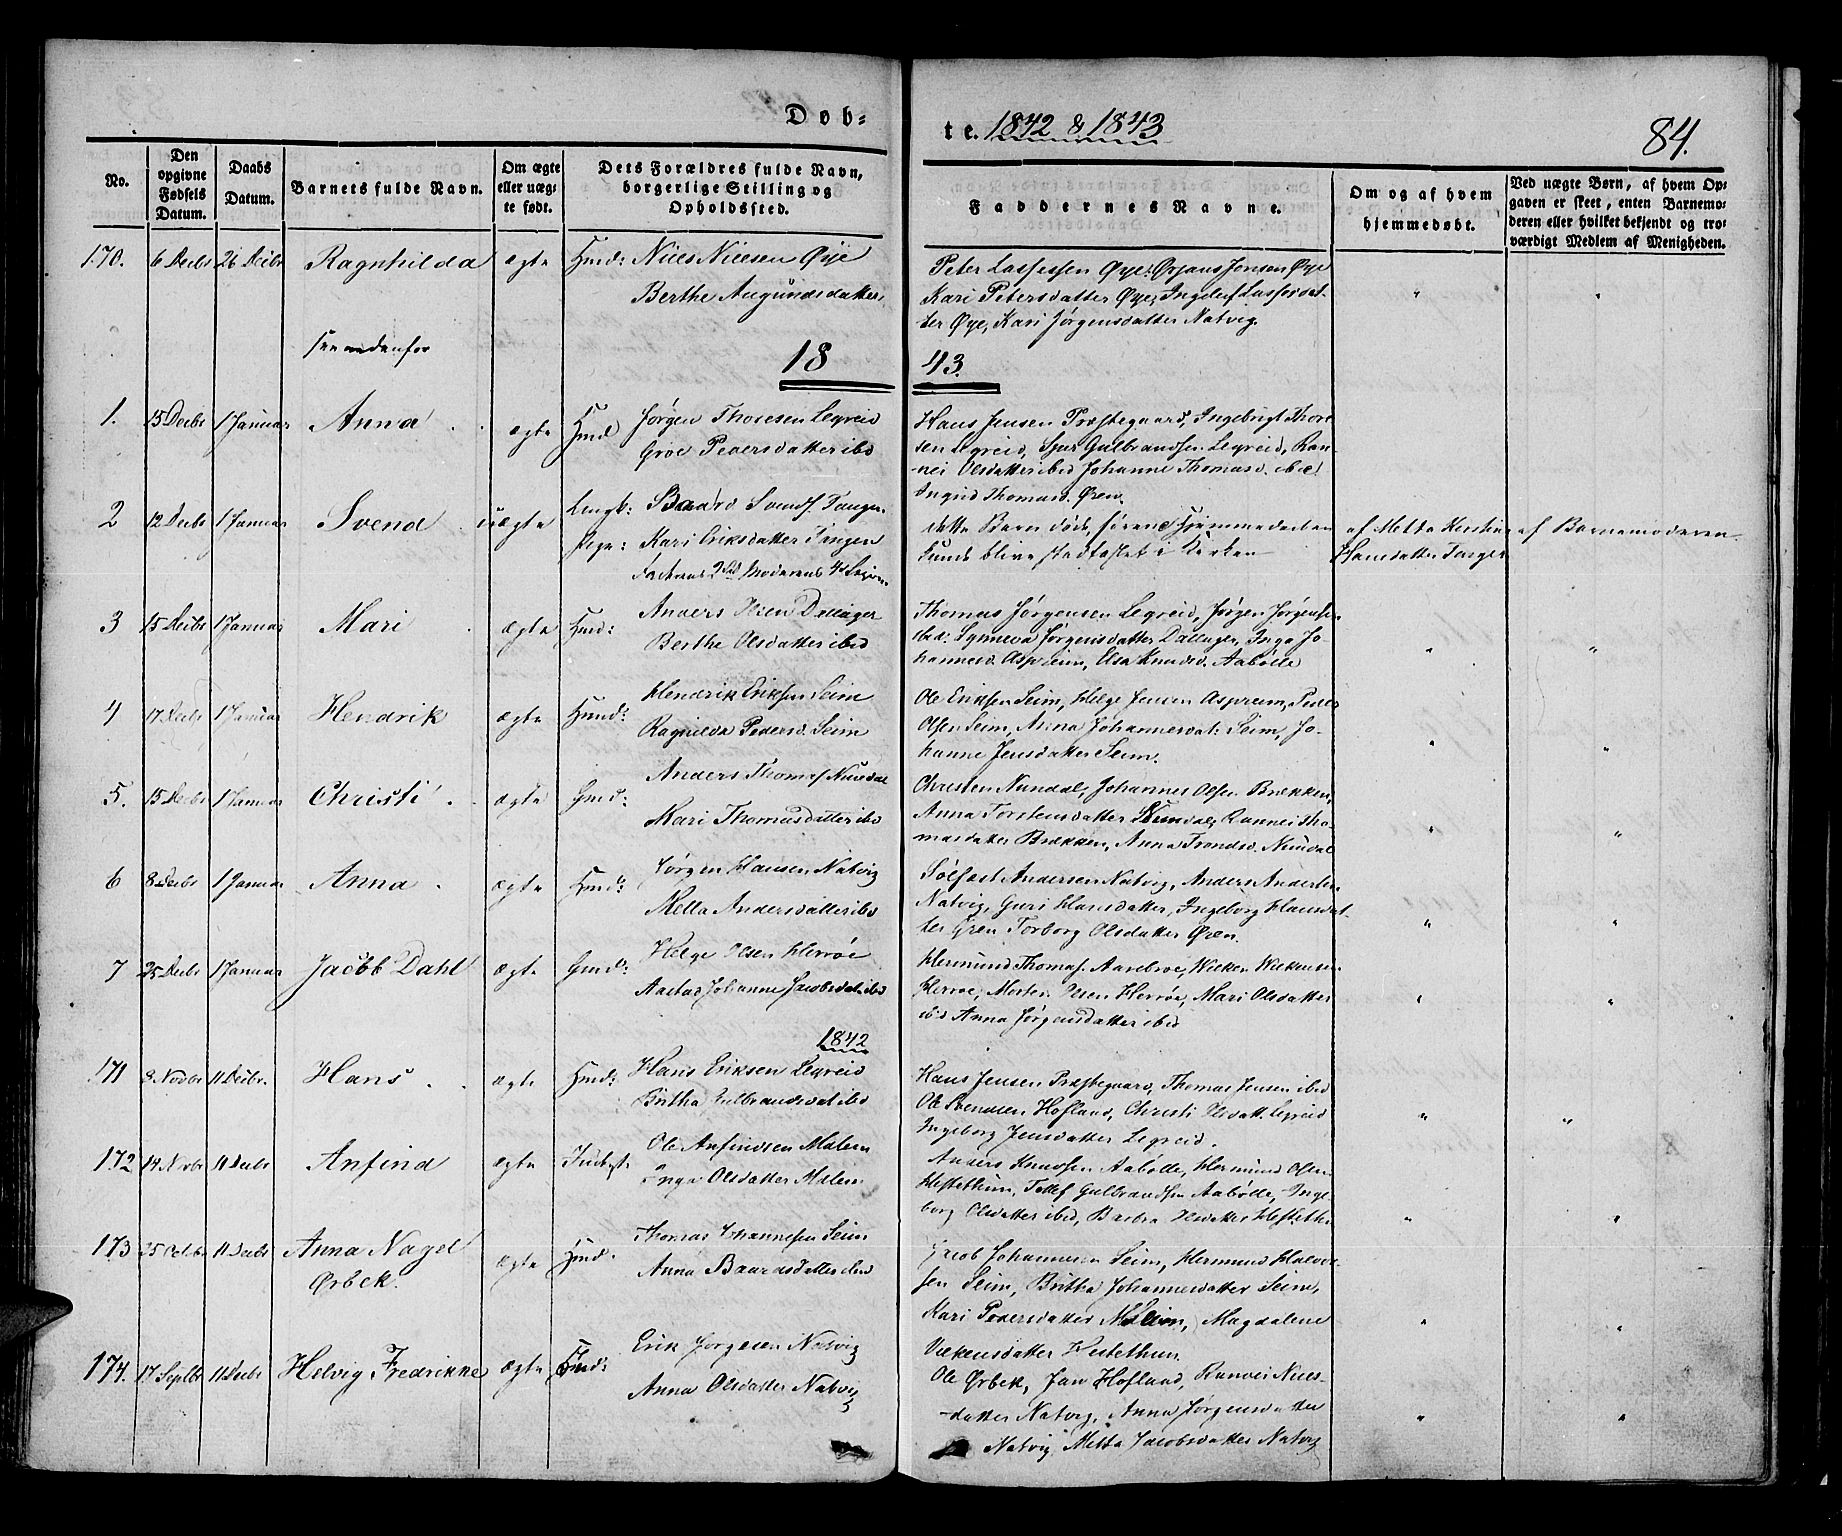 Døb-
te. 1842 & 1843
84.
No.
Den opgivne Fødsels Datum.
Daabs Datum.
Barnets fulde Navn.
Om ægte eller uægte født.
Dets Forældres fulde Navn, borgerlige Stilling og Opholdssted.
Faddernes Navne.
Om og af hvem hjemmedøbt.
Ved uægte Børn, af hvem Opgaven er skeet, enten Barnemoderen eller hvilket bekjendt og troværdigt Medlem af Menigheden.
170. 6 Decbr 26 Decbr Ragnhilda ægte Huusmd: Niels Nielsen Øye
Berthe Augundsdatter
Peter Lassesen Øye, Ørjans Jonsen Øye
Kari Petersdatter Øye, Ingelef Lassesdat-
ter Øye, Kari Jørgensdatter Natvig.
see nedenfor
18
43.
1. 15 Decbr 1 Januar Anna ægte Huusmd Jørgen Thoresen Legreid
Groe Pedersdatter ibd
Hans Jensen Præstegaard, Ingebrigt Thore-
sen Legreid, Sjur Gulbrandsen Legreid, Ran-
nei Olsdatter ibid Johanne Thomasd. ibid
Ingrid Thomasd. Øren.
2 12 Decbr 1 Januar Svend uægte
Baard Svends. Tangen
Kari Eriksdatter Tangen
Faderens 2det Moderens 4de Leierm.
dette Barn døde, førend Hjemmedaaben
kunde blive stadfæstet i Kirken
af Metta Kirstine
Hansdatter Tangen
af Barnemoderen
3 15 Decbr 1 Januar Mari ægte Huusmd: Anders Olsen Dallager
Berthe Olsdatter ibid
Thomas Jørgensen Legreid, Jørgen Jørgensen
ibid: Synneva Jørgensdatter Dallager, Inga Jo-
hannesd. Aspreim, Elsa Knudsd. Aabølle
4 17 Decbr 1 Januar Hendrik ægte Huusmd: Hendrik Eriksen Seim
Ragnilda Pedersd. Seim
Ole Eriksen Seim, Helge Jensen Aspreim, Peder
Olsen Seim, Anna Johannesdat: Seim, Jo-
hanne Jensdatter Seim.
5. 15 Decbr 1 Januar Christi ægte Gmd: Anders Thomas. Nundal
Mari Thomasdatter ibd
Christen Nundal, Johannes Olsen Brækken,
Anna Torstensdatter Nundal, Rannei Tho-
masdatter Brækken, Anna Trondsd. Nundal
6 8 Decbr 1 Januar Anna ægte Huusmd: Jørgen Hansen Natvig
Metta Andersdatter ibd
Sølfast Andersen Natvig, Anders Andersen
Natvig, Guri Hansdatter, Ingeborg Hansdat-
ter Øren Torborg Olsdatter Øren.
7 25 Decbr 1 Januar Jacob Dahl ægte Gmd: Helge Olsen Herrøe
Aastad Johanne Jacobsdat. ibd
Hermund Thomas. Aarebroe, Willen Willumsen
Herrøe, Morten Olsen Herrøe, Mari Olsdatter
ibid Anna Jørgensdatter ibid
1842
171 8 Novbr 11 Decbr. Hans ægte Huusmd: Hans Eriksen Legreid
Britha Gulbrandsdat ibd
Hans Jensen Præstegaard, Thomas Jensen ibid
Ole Svendsen Hofland, Christi Olsdatt. Legreid
Ingeborg Jensdatter Legreid.
172 14 Novbr 11 Decbr Anfind ægte Inderst Ole Anfindsen Malem
Inga Olsdatter Malem
Anders Knudsen Aabølle, Hermund Olsen
Hestethun, Tollef Gulbrandsen Aabølle, Inge-
borg Olsdatter ibid, Barbra Olsdatter Hesteth.
173 25 Octbr 11 Decbr Anna Nagel
Ørbek. ægte Huusmd: Thomas Johannesen Seim
Anna Baardsdatter ibid
Jacob Johannesen Seim, Hermund Halvor-
sen Seim, Britha Johannesdatter Seim,
Kari Pedersdatter Malem, Magdalene
Vilkensdatter Hestethun.
174. 17 Septbr 11 Decbr Helvig Fredrikke ægte Huusmd: Erik Jørgesen Natvig
Anna Olsdatter Natvig
Ole Ørbek, Jan Hofland, Ranvei Niels-
datter Natvig, Anna Jørgensdatter
Natvig Metta Jacobsdatter Natvig